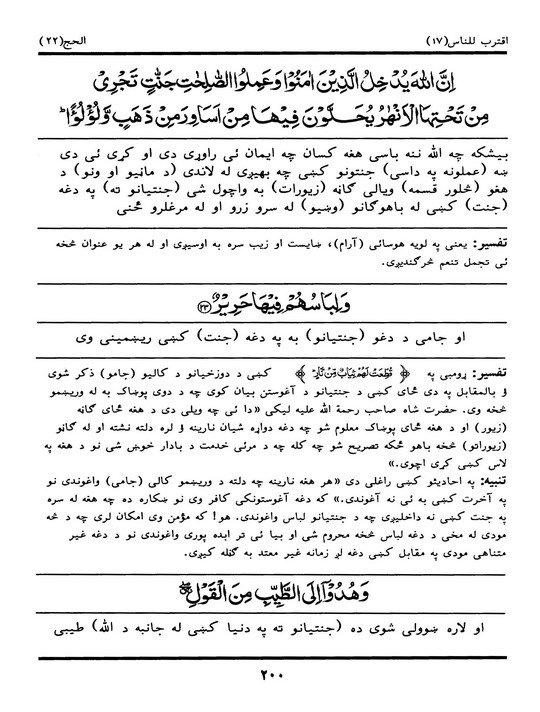 اقترب للناس(۱۷) الحج(۲۲)
اِنَّ اللّٰهَ یُدْخِلُ الَّذِیْنَ اٰمَنُوْا وَ عَمِلُوا الصّٰلِحٰتِ جَنّٰتٍ تَجْرِیْ
مِنْ تَحْتِهَا الْاَنْهٰرُ یُحَلَّوْنَ فِیْهَا مِنْ اَسَاوِرَ مِنْ ذَهَبٍ وَّ لُؤْلُؤًا ؕ
بیشکه چه الله ننه باسی هغه کسان چه ایمان ئی راوړی دی او کړی ئی دی
ښه (عملونه په داسی) جنتونو کښی چه بهیږی له لاندی (د مانیو او ونو) د
هغو (څلور قسمه) ویالی ګاڼه (زیورات) به واچول شی (جنتیانو ته) په دغه
(جنت) کښی له باهوګانو (وښیو) له سرو زرو او له مرغلرو څنی
تفسیر: یعنی په لویه هوسائی (آرام)، ښایست او زیب سره به اوسیږی او له هر یو عنوان څخه
ئی تجمل تنعم څرګندیږی.
وَ لِبَاسُهُمْ فِیْهَا حَرِیْرٌ ﴿۲۳﴾
او جامی د دغو (جنتیانو) به په دغه (جنت) کښی ریښمینی وی
تفسیر: ړومبی په ﴿ قُطِّعَتْ لَهُمْ ثِیَابٌ مِّنْ نَّارٍ ﴾ کښی د دوزخیانو د کالیو (جامو) ذکر شوی
ؤ بالمقابل په دی ځای کښی د جنتیانو د آغوستن بیان کوی چه د دوی پوښاک به له وریښمو
څخه وی. حضرت شاه صاحب رحمة الله علیه لیکی «دا ئی چه ویلی دی د هغه ځای ګاڼه
(زیور) او د هغه ځای پوښاک معلوم شو چه دغه دواړه شیان نارینه ؤ لره دلته نشته او له ګاڼو
(زیوراتو) څخه باهو ځکه تصریح شو چه کله چه د مرئی خدمت د بادار خوښ شی نو د هغه په
لاس کښی کړی اچوی.»
تنبیه: په احادیثو کښی راغلی دی «هر هغه نارینه چه دلته د وریښمو کالی (جامی) واغوندی نو
په آخرت کښی به ئی نه آغوندی.» که دغه آغوستونکی کافر وی نو ښکاره ده چه هغه له سره
په جنت کښی نه داخلیږی چه د جنتیانو لباس واغوندی. هو! که مؤمن وی امکان لری چه د څه
مودی له مخی د دغه لباس څخه محروم شی او بیا ئی تر ابده پوری واغوندی نو د دغه غیر
متناهی مودی په مقابل کښی دغه لږ زمانه غیر معتد به ګڼله کیږی.
وَ هُدُوْۤا اِلَی الطَّیِّبِ مِنَ الْقَوْلِ
او لاره ښوولی شوی ده (جنتیانو ته په دنیا کښی له جانبه د الله) طیبی
۲۰۰